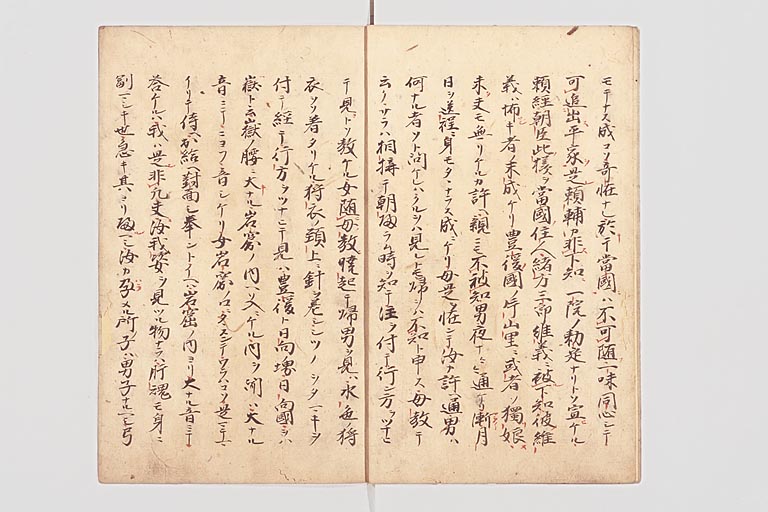 モテナス成コソ奇怪ナレ於テ當國ハ不可随一味同心シテ
可追出平家是頼輔カ非下知一院ノ勅定ナリトソ宣ケル
頼経朝臣此様ヲ當國住人緒方三郎維義ニ被下知彼維
義ハ怖キ者ノ末成ケリ豊後國ノ片山里ニ或者ノ獨娘
未夫モ無リケルカ許ヘ親ニモ不被知男夜ナ〱通リ漸月
日ヲ送程ニ身モタヽナラス成ニケリ母是ヲ怪テ汝カ許ヘ通男ハ
何ナル者ソト問ケレハクルヲハ見レトモ帰ヲハ不知ト申ス母教テ
云ク サラハ相構テ朝帰ラム時シルシヲ付テ行方ヲツナヒ
テ見トソ教ケル女随母教暁起テ帰男ヲ見ハ水色ノ狩
衣ヲソ着タリケル狩衣ノ頚上ニ針ヲ差シシツノヲタマキヲ
付テ経テ行方ヲツナヒテ見ハ豊後ト日向堺日向國ヲハ
嶽ト云嶽ノ腰ニ大ナル岩窟ノ内ヘソ入ニケル内ヲ聞ハ大ナル
音ニテニヨフ音シケリ女岩窟ノ口ニタヽスンテワラハコソ是マテ
マイリテ侍ヘ出給ヘ對面シ奉ントイヘハ岩窟ノ内ヨリ大ナル音ニテ
答ケルハ我ハ是非凡夫汝我姿ヲ見ツル物ナラハ肝魂モ身ニ
副マシキ世急キ其ヨリ帰レ汝カ孕メル所ノ子ハ男子ナルヘシ弓